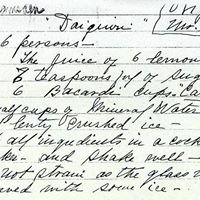 "Daiquiri"
6 persons—
The juice of 6 lemon
8 teaspoons of sug
6 Bacardi cups "Ca
half cups of Mineral Water
lenty crushed ice—
all ingredients in a cock
and shake well—
not strain as the glass
ved with some ice—